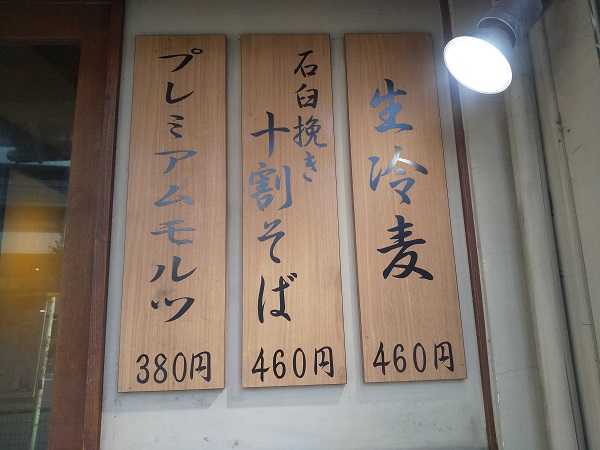 生冷麦
460円
石臼挽き
十割そば
460円
プレミアムモルツ
380円